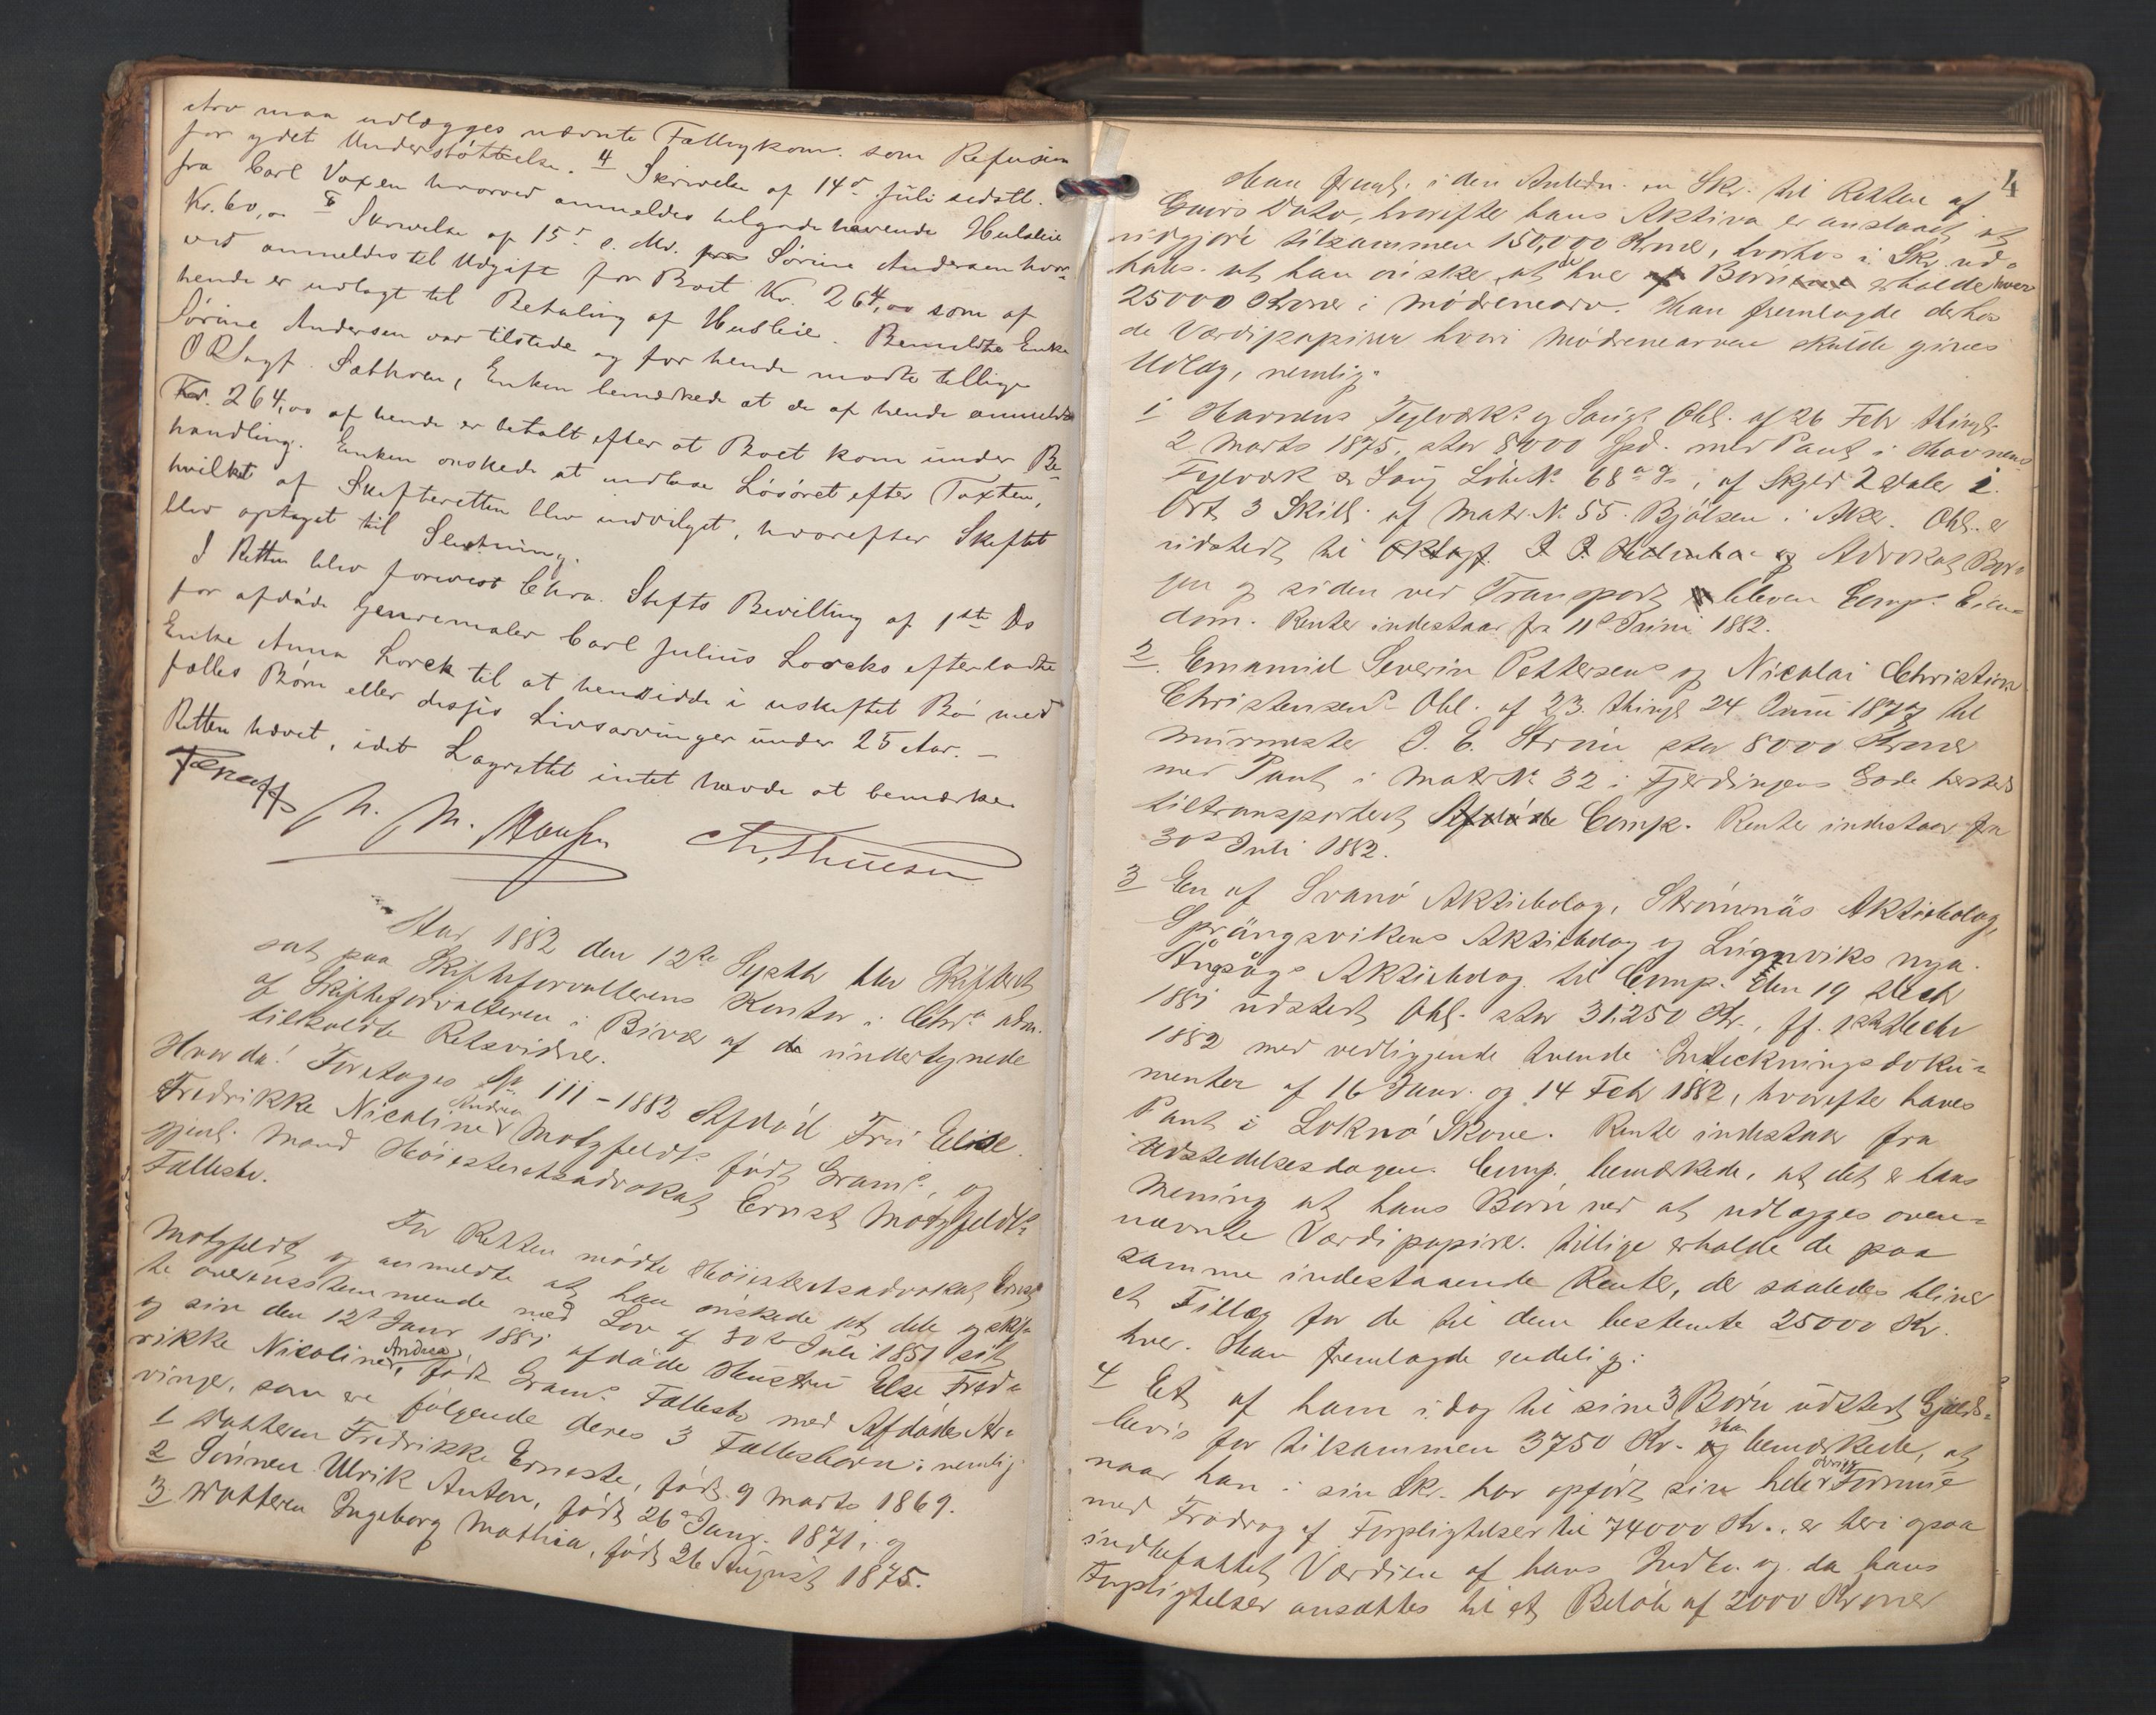 Arv maa udlægges nævnte Fattigkom. som Refusion
for ydet Understøttelse. 4 Skrivelse af 14d Juli sidstl.
fra Carl Voxen hvorved anmeldes tilgodehavende Husleie
Kr. 60,00 5 Skrivelse af 15d s. Md. fra Sørine Andersen hvor-
ved anmeldes til Udgift for Boet Kr. 264,00 som af
hende er udlagt til Betaling af Husleie. Bemeldte Enke
Sørine Andersen var tilstede og for hende mødte tillige
O R Sagf. Sæthren, Enken bemærkede at de af hende anmeldte
Kr. 264,00 af hende er betalt efter at Boet kom under Be-
handling. Enken ønskede at indløse Løsøret efter Taxten,
hvilket af Skifteretten blev indvilget, hvorefter Skiftet
blev optaget til Slutning.
I Retten blev forevist Chra. Stifts Bevilling af 1ste Ds
for afdøde Genremaler Carl Julius Lorcks efterladte
Enke Anna Lorck til at hensidde i uskiftet Bo med
fælles Børn eller desses Livsarvinger under 25 Aar. —
Retten hævet, idet Lagrettet intet havde at bemærke.
N. M. Hansen
Aar 1882 den 12te Septbr blev Skifteret
sat paa Skifteforvalterens Kontor i Chra adm.
af Skifteforvalteren i Bivær af de undertegnede
tilkaldte Retsvidner.
Hvor da! Foretoges No 111 - 1882 Afdød Fru Elise
Fredrikke Nicoline Andrea Motzfeldts født Grams, og
gjenl. Mand Høiesteretsadvokat Ernst Motzfeldts
Fællesbo.
For Retten mødte Høiesteretsadvokat Ernst
Motzfeldt og anmeldte at han ønskede at dele og skif-
te overensstemmende med Lov af 30te Juli 1851 sit
og sin den 12te Januar 1881 afdøde Hustru Else Fred-
rikke Nicoline Andreas, født Grams Fællesbo med Afdødes Ar-
vinger, som ere følgende deres 3 Fællesbørn: nemlig
1 Datteren Fredrikke Erneste, født 9 Marts 1869.
2 Sønnen Ulrik Anton, født 26 Janr. 1871, og
3 Datteren Ingeborg Mathia, født 26 August 1875.
4
Han freml. i den Anledn. en Skr. til Retten af
Gaars Dato, hvorefter hans Aktiva er anslaaet at
udgjøre tilsammen 150,000 Kroner, hvorhos i Skr. ud-
tales at han ønsker, at de hver af Børnene erholde hver
25000 Kroner i mødrenearv. Han fremlagde derhos
de Værdipapirer hvori mødrenearven skulde gives
Udlæg, nemlig:
1 Havnens Teglværks og Saugs Obl. af 26 Febr thingl.
2 Marts 1875, stor 8000 Spd. med Pant i Havnens
Teglværk & Saug LøbeNo 68 a g, af Skyld 2 Daler 2
Ort 3 Skill. af Matr. No 55. Bjølsen i Aker. Obl. er
udstedt til ORSagf. og Advokat Ber-
gen og siden ved Transport bleven Comp. Eien-
dom. Renter indestaar fra 11te Juni 1882.
2 Emanuel Severin Pettersens og Nicolai Christian
Christensens Obl. af 23. thingl 24 Juni 1877 til
Murmester J. E. Strøm stor 8000 Kroner
med Pant i Matr No 32 i Fjerdingens Gade hersteds
tiltransporteret Afdøde Comp. Renter indestaar fra
30te Juli 1882.
3 En af Svanø Aktiebolag, Strömnäs Aktiebolag,
Sprängsvikens Aktiebolag og Lugnviks nya
Ångsågs Aktiebolag til Comp. den 19 Decbr
1881 udstedt Obl. stor 31,250 Kr., ff. 1ste Decbr
1882 med vedliggende tvende Inteckningsdoku-
menter af 16 Janr. og 14 Febr 1882, hvorefter haves
Pant i Loknø Skove. Renter indestaar fra
Udstedelsesdagen. Comp. bemærkede, at det er hans
Mening at hans Børn ved at udlægges oven-
nævnte Værdipapirer tillige erholde de paa
samme indestaaende Renter, der saaledes bliver
et Tillæg for de til dem bestemte 25000 Kr.
hver. Han fremlagde endelig:
4 Et af ham i dag til sine 3 Børn udstedt Gjælds-
bevis for tilsammen 3750 Kr. og Han bemærkede, at
naar han i sin Skr. har opført sin hele øvrige Formue
med Fradrag af Forpligtelser til 74000 Kr., er heri ogsaa
indbefattet Værdien af hans Indbo og da hans
Forpligtelser ansættes til et Beløb af 2000 Kroner